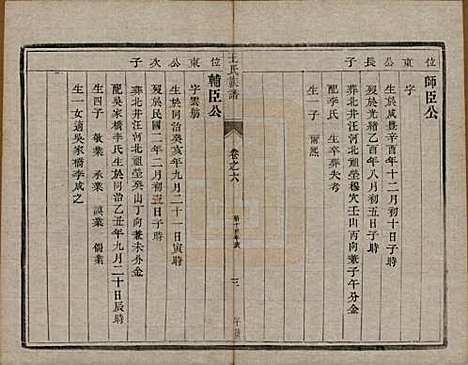 師臣公
位東公長子
字
生於咸豐辛酉年十二月初十日子時
歿於光緒乙酉年八月初五日子時
葬北井汪河北祖塋穆穴壬山丙向兼子午分金
配李氏 生卒葬失考
生一子
王氏族譜
卷之六
三
輔臣公
位東公次子
字雲勷
生於同治癸亥年九月二十一日寅時
歿於民國二年二月初五日子時
葬北井汪河北祖塋癸山丁向兼丑未分金
配吳家橋李氏生於同治乙丑年九月二十日辰時
生四子 敬業 承業 謨業 儒業
生一女適吳家橋李成之